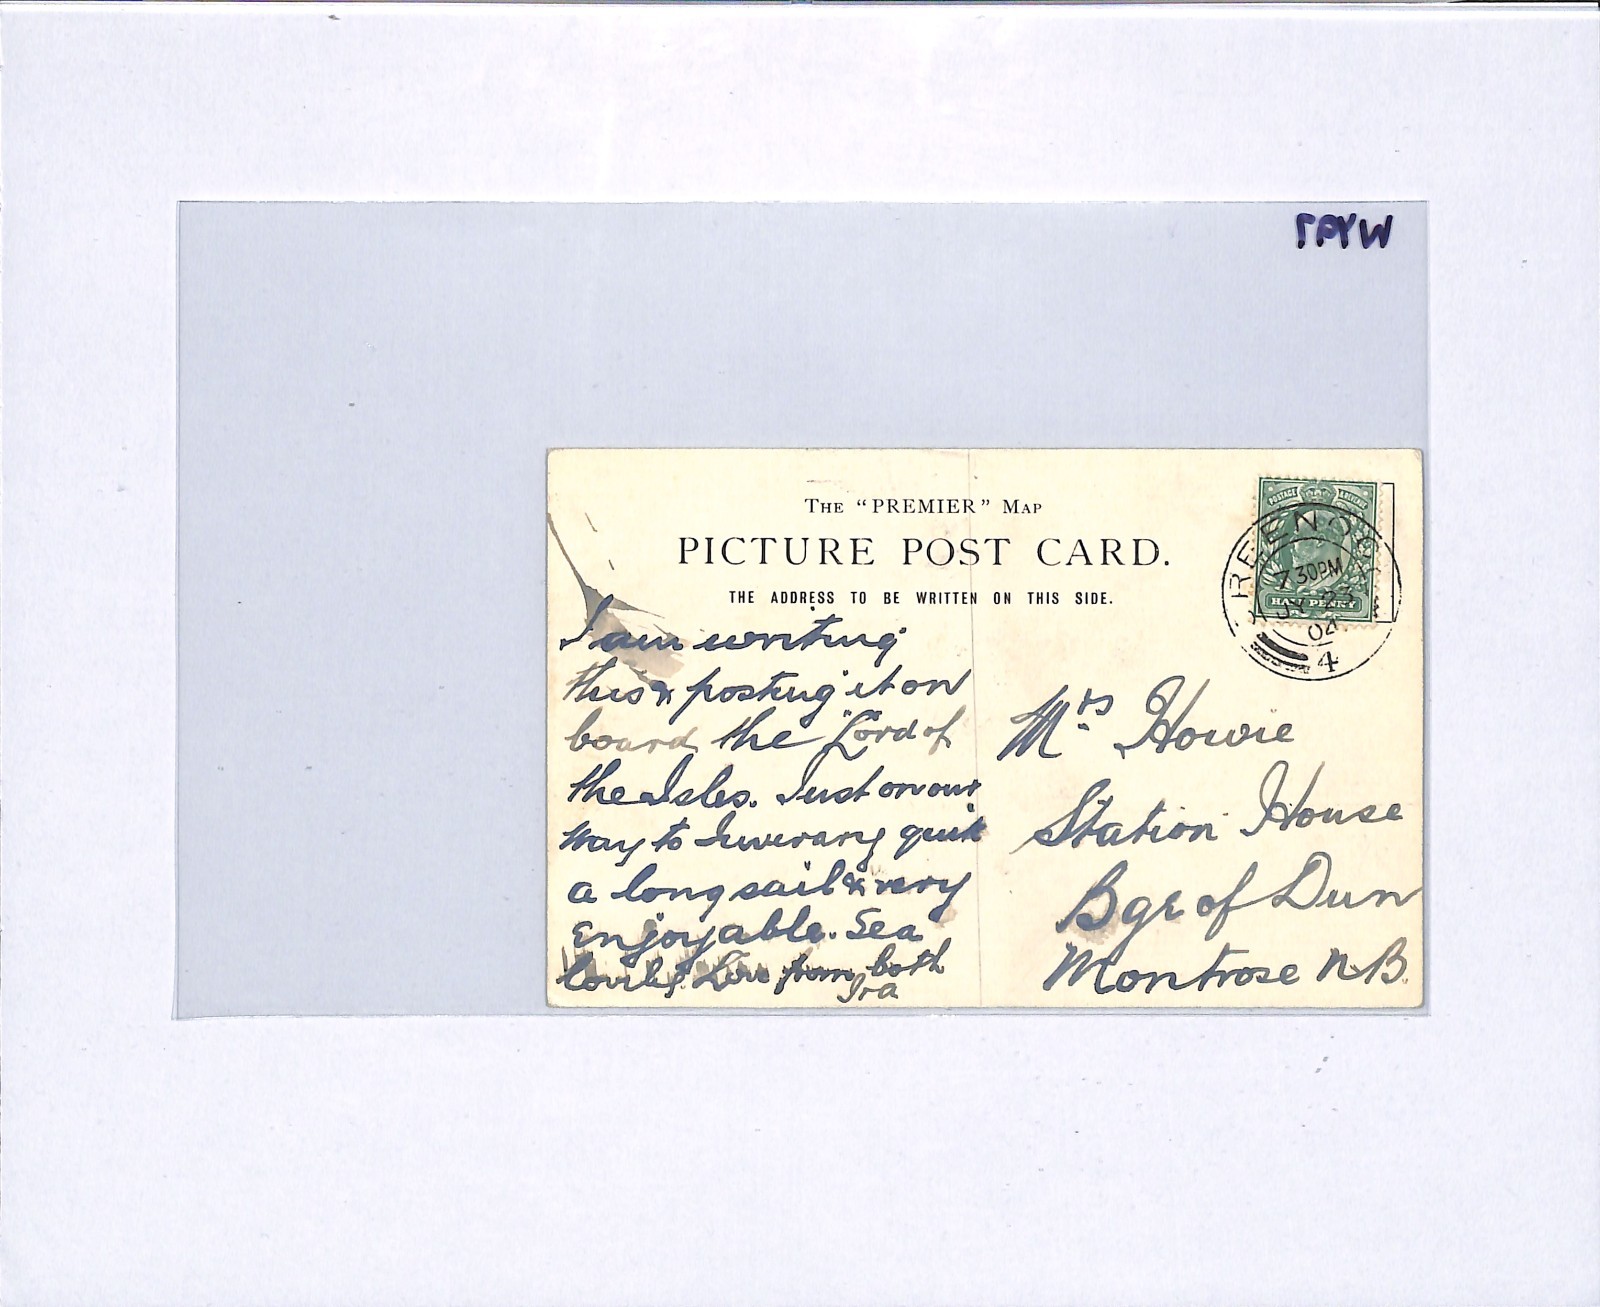 WYP7
The “PREMIER” Map
PICTURE POST CARD.
THE ADDRESS TO BE WRITTEN ON THIS SIDE.
POSTAGE & REVENUE
HALF PENNY
GREENOCK
7 30PM
JY 23
04
4
I am writing
this & posting it on
board the "Lord of
the Isles. Just on our
way to Inverary quite
a long sail & very
enjoyable. Sea
lovely. Love from both
Ira
Mrs Howie
Station House
Bge of Dun
Montrose N.B.